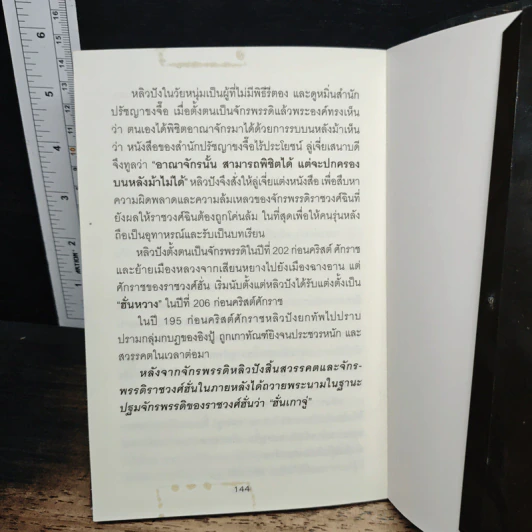 หลิวปังในวัยหนุ่มเป็นผู้ที่ไม่มีพิธีรีตอง และดูหมิ่นสำนัก
ปรัชญาขงจื๊อ เมื่อตั้งตนเป็นจักรพรรดิแล้วพระองค์ทรงเห็น
ว่า ตนเองได้พิชิตอาณาจักรมาได้ด้วยการรบบนหลังม้าเห็น
ว่า หนังสือของสำนักปรัชญาขงจื๊อไร้ประโยชน์ ลู่เจี่ยเสนาบดี
จึงทูลว่า "อาณาจักรนั้น สามารถพิชิตได้ แต่จะปกครอง
บนหลังม้าไม่ได้" หลิวปังจึงสั่งให้ลู่เจี่ยแต่งหนังสือ เพื่อสืบหา
ความผิดพลาดและความล้มเหลวของจักรพรรดิราชวงศ์ฉินที่
ยังผลให้ราชวงศ์ฉินต้องถูกโค่นล้ม ในที่สุดเพื่อให้คนรุ่นหลัง
ถือเป็นอุทาหรณ์และรับเป็นบทเรียน
หลิวปังตั้งตนเป็นจักรพรรดิในปีที่ 202 ก่อนคริสต์ ศักราช
และย้ายเมืองหลวงจากเสียนหยางไปยังเมืองฉางอาน แต่
ศักราชของราชวงศ์ฮั่น เริ่มนับตั้งแต่หลิวปังได้รับแต่งตั้งเป็น
"ฮั่นหวาง" ในปีที่ 206 ก่อนคริสต์ศักราช
ในปี 195 ก่อนคริสต์ศักราชหลิวปังยกทัพไปปราบ
ปรามกลุ่มกบฏของอิงปู้ ถูกเกาทัณฑ์ยิงจนประชวรหนัก และ
สวรรคตในเวลาต่อมา
หลังจากจักรพรรดิหลิวปังสิ้นสวรรคตและจักร-
พรรดิราชวงศ์ฮั่นในภายหลังได้ถวายพระนามในฐานะ
ปฐมจักรพรรดิของราชวงศ์ฮั่นว่า "ฮั่นเกาจู่"
144
6
5
4
3
2
1